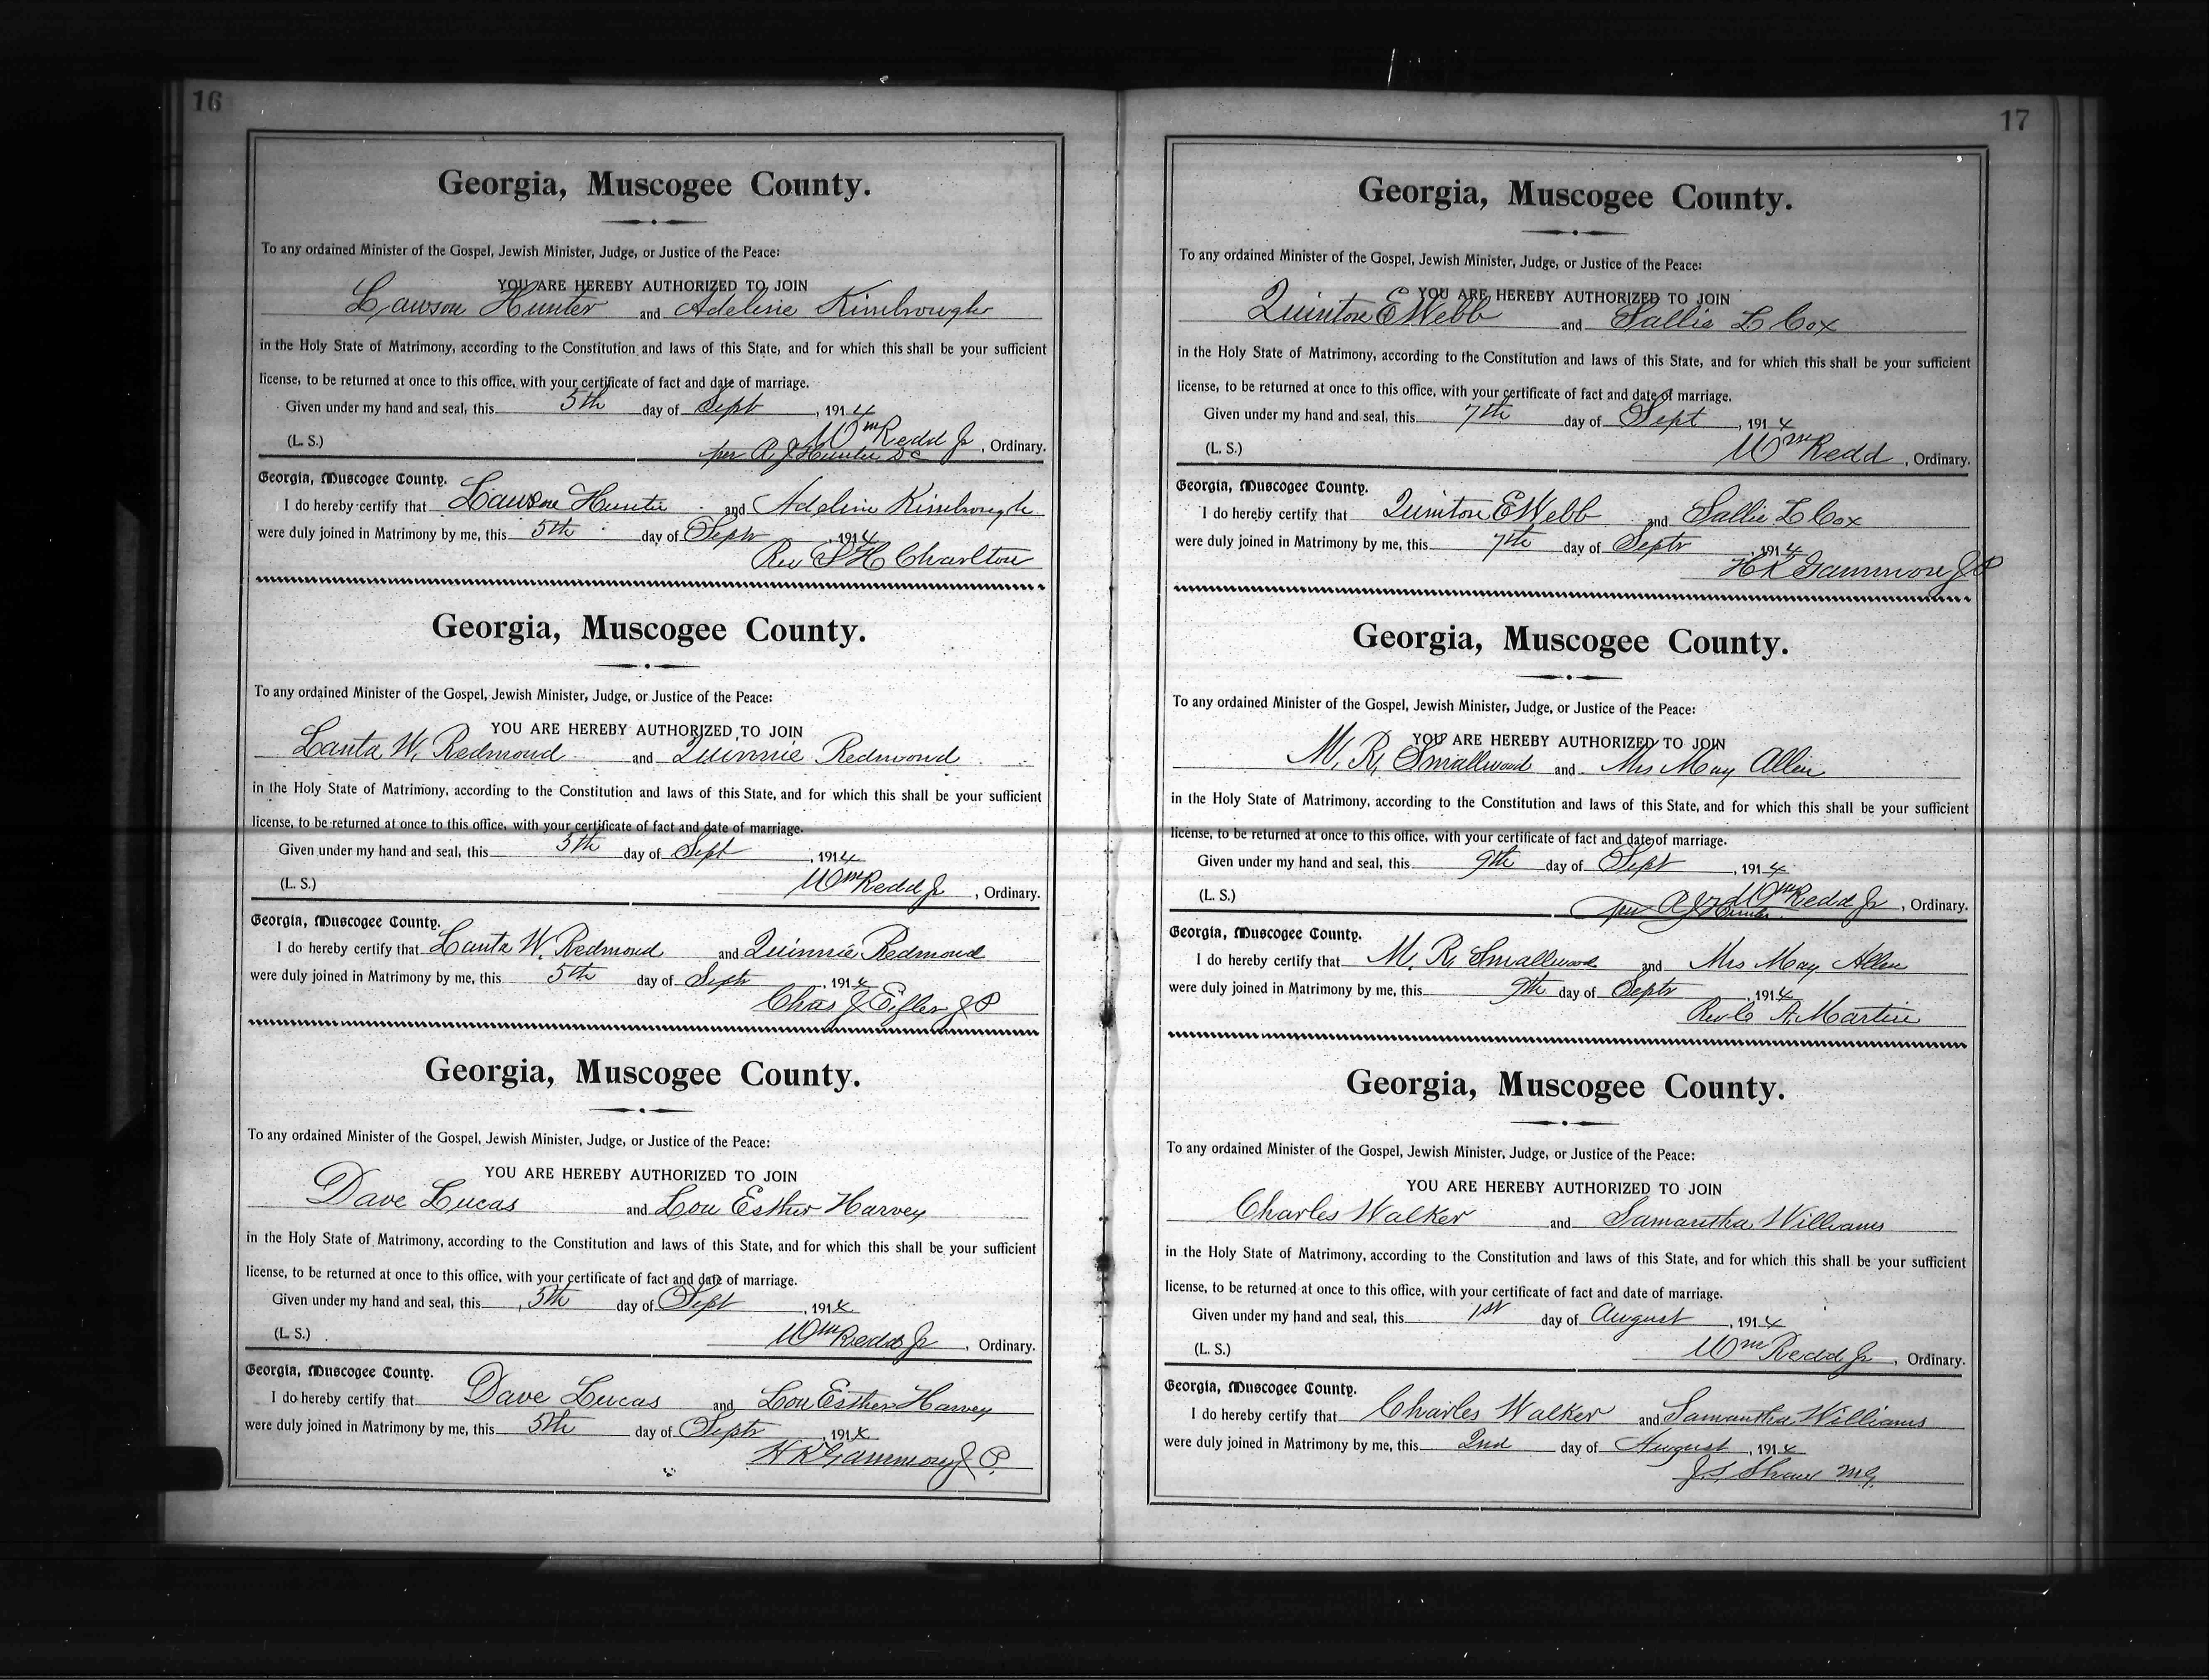 16
Georgia, Muscogee County.
To any ordained Minister of the Gospel, Jewish Minister, Judge, or Justice of the Peace:
YOU ARE HEREBY AUTHORIZED TO JOIN
Lawson Hunter and Adeline Kimbrough
in the Holy State of Matrimony, according to the Constitution and laws of this State, and for which this shall be your sufficient
license, to be returned at once to this office, with your certificate of fact and date of marriage.
Given under my hand and seal, this 5th day of Sept, 1914
(L. S.) Wm Redd Jr, Ordinary.
per A J Hunter DC
Georgia, Muscogee County.
I do hereby certify that Lawson Hunter and Adeline Kimbrough
were duly joined in Matrimony by me, this 5th day of Sept, 1914
Rev S H Charlton
Georgia, Muscogee County.
To any ordained Minister of the Gospel, Jewish Minister, Judge, or Justice of the Peace:
YOU ARE HEREBY AUTHORIZED TO JOIN
Lanta W. Redmond and Quinnie Redmond
in the Holy State of Matrimony, according to the Constitution and laws of this State, and for which this shall be your sufficient
license, to be returned at once to this office, with your certificate of fact and date of marriage.
Given under my hand and seal, this 5th day of Sept, 1914
(L. S.) Wm Redd Jr, Ordinary.
Georgia, Muscogee County.
I do hereby certify that Lanta W. Redmond and Quinnie Redmond
were duly joined in Matrimony by me, this 5th day of Sept, 1914
Chas J Eifler J P
Georgia, Muscogee County.
To any ordained Minister of the Gospel, Jewish Minister, Judge, or Justice of the Peace:
YOU ARE HEREBY AUTHORIZED TO JOIN
Dave Lucas and Lou Esther Harvey
in the Holy State of Matrimony, according to the Constitution and laws of this State, and for which this shall be your sufficient
license, to be returned at once to this office, with your certificate of fact and date of marriage.
Given under my hand and seal, this 5th day of Sept, 1914
(L. S.) Wm Redd Jr, Ordinary.
Georgia, Muscogee County.
I do hereby certify that Dave Lucas and Lou Esther Harvey
were duly joined in Matrimony by me, this 5th day of Septr, 1914
H R Gammon J P.
17
Georgia, Muscogee County.
To any ordained Minister of the Gospel, Jewish Minister, Judge, or Justice of the Peace:
YOU ARE HEREBY AUTHORIZED TO JOIN
Quinton E Webb and Sallie L Cox
in the Holy State of Matrimony, according to the Constitution and laws of this State, and for which this shall be your sufficient
license, to be returned at once to this office, with your certificate of fact and date of marriage.
Given under my hand and seal, this 7th day of Sept, 1914
(L. S.) Wm Redd, Ordinary.
Georgia, Muscogee County.
I do hereby certify that Quinton E Webb and Sallie L Cox
were duly joined in Matrimony by me, this 7th day of Septr, 1914
H R Gammon J P
Georgia, Muscogee County.
To any ordained Minister of the Gospel, Jewish Minister, Judge, or Justice of the Peace:
YOU ARE HEREBY AUTHORIZED TO JOIN
M. R. Smallwood and Mrs May Allen
in the Holy State of Matrimony, according to the Constitution and laws of this State, and for which this shall be your sufficient
license, to be returned at once to this office, with your certificate of fact and date of marriage.
Given under my hand and seal, this 9th day of Sept, 1914
(L. S.) Wm Redd Jr, Ordinary.
per A J Hunter
Georgia, Muscogee County.
I do hereby certify that M. R. Smallwood and Mrs May Allen
were duly joined in Matrimony by me, this 9th day of Septr, 1914
Rev C A. Martin
Georgia, Muscogee County.
To any ordained Minister of the Gospel, Jewish Minister, Judge, or Justice of the Peace:
YOU ARE HEREBY AUTHORIZED TO JOIN
Charles Walker and Samantha Williams
in the Holy State of Matrimony, according to the Constitution and laws of this State, and for which this shall be your sufficient
license, to be returned at once to this office, with your certificate of fact and date of marriage.
Given under my hand and seal, this 1st day of August, 1914
(L. S.) Wm Redd Jr, Ordinary.
Georgia, Muscogee County.
I do hereby certify that Charles Walker and Samantha Williams
were duly joined in Matrimony by me, this 2nd day of August, 1914
J. S. Shaw M.G.